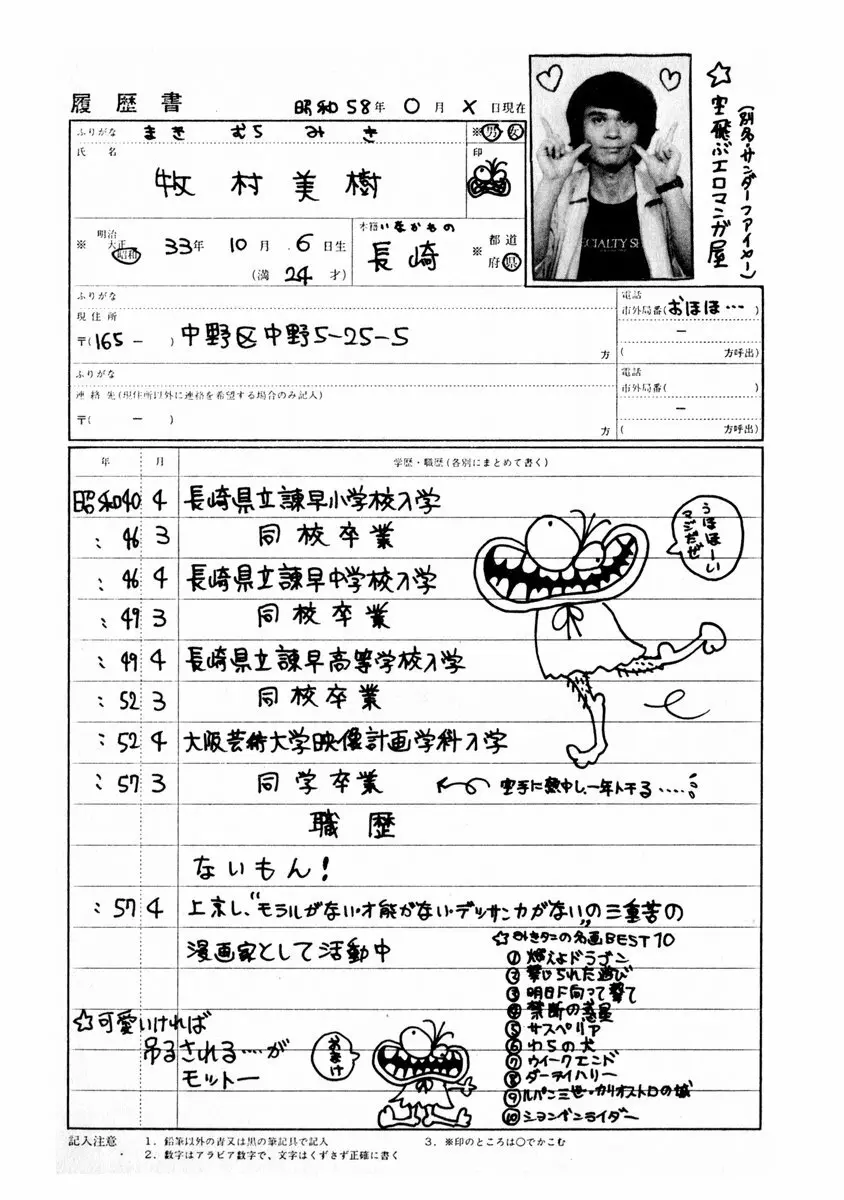 履歴書
昭和58年 〇月 ×日現在
☆空飛ぶエロマンガ屋
(別名・サンダーファイヤー)
ふりがな まき むら みき
※男・女
氏 名
牧村美樹
印
※ 明治 大正 昭和 33年 10月 6日生
(満 24 才)
本籍 いなかもの
長崎
※ 都道府県
ふりがな
現住所
〒(165 - ) 中野区中野5-25-5
方
電話
市外局番(おほほ…)
ー
( 方呼出)
ふりがな
連絡先(現住所以外に連絡を希望する場合のみ記入)
〒( - )
方
電話
市外局番( )
ー
( 方呼出)
年 月 学歴・職歴(各別にまとめて書く)
昭和40 4 長崎県立諫早小学校入学
: 46 3 同校卒業
: 46 4 長崎県立諫早中学校入学
: 49 3 同校卒業
: 49 4 長崎県立諫早高等学校入学
: 52 3 同校卒業
: 52 4 大阪芸術大学映像計画学科入学
: 57 3 同学卒業 ← 空手に熱中し、一年トチる……
うほほーい
マジだぜ
職歴
ないもん!
: 57 4 上京し、"モラルがない・才能がない・デッサン力がない"の三重苦の
漫画家として活動中
☆みきタニの名画BEST10
①燃えよドラゴン
②禁じられた遊び
③明日に向って撃て
④禁断の惑星
⑤サスペリア
⑥わらの犬
⑦ウイークエンド
⑧ダーティハリー
⑨ルパン三世・カリオストロの城
⑩シャンドライダー
☆可愛いければ
吊るされる…が
モットー
おまけ
記入注意 1. 鉛筆以外の青又は黒の筆記具で記入 3. ※印のところは〇でかこむ
2. 数字はアラビア数字で、文字はくずさず正確に書く